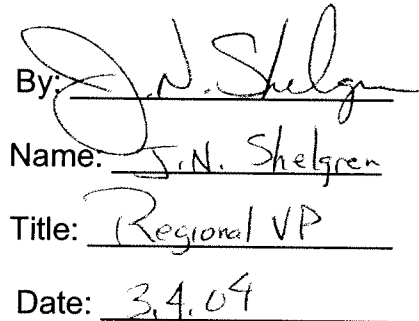 By: J.N. Shelgren
Name: J.N. Shelgren
Title: Regional VP
Date: 3.4.04